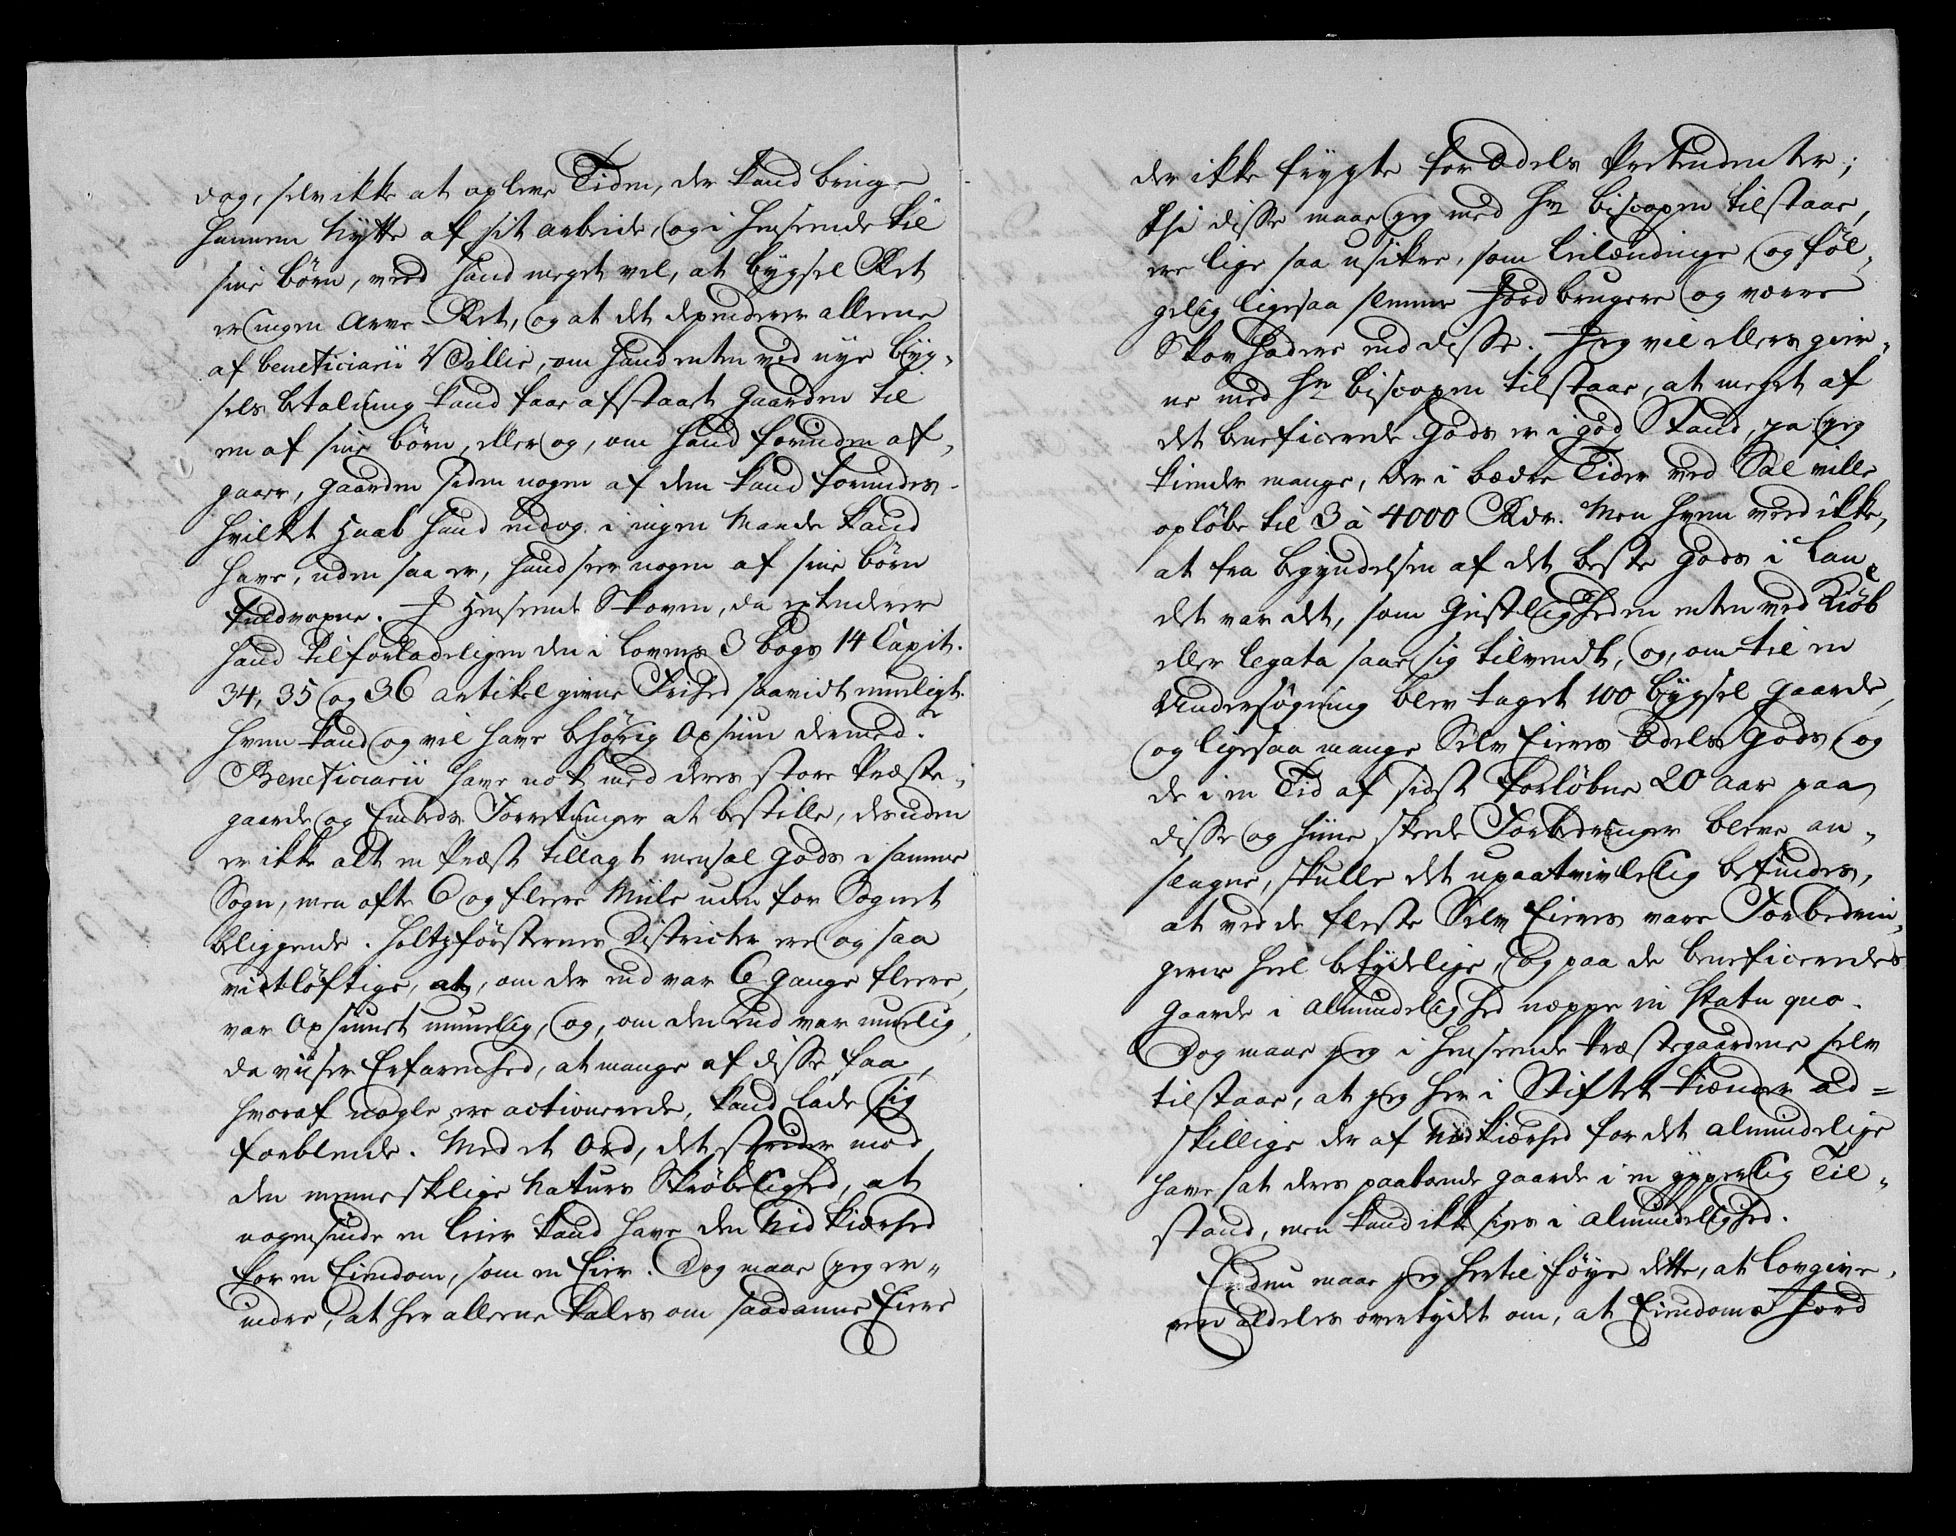 dog, selv ikke at opleve Tiden, der kand bringe
hannem Nytte af sit arbeide, og i henseende til
sine børn, veed hand meget vel, at bygsel Ret
er ingen Arve-Ret, og at det dependerer alleene
af beneficiarii Villie, om hand enten ved nye byg-
sels betalning kand faae afstaaet gaarden til
en af sine børn, eller og, om hand foruden af-
gaaer, gaarden siden nogen af dem kand forundes
hvilket Haab hand endog i ingen Maade kand
have, uden saa er, hand seer nogen af sine børn
fuldvoxne. I Henseende Skoven, da extenderer
hand tilforladeligen den i Lovens 3 bogs 14 Capit.
34, 35 og 36 artikel givne Frihed saavidt mueligt.
hvem kand og vil have behørig Opsiun dermed?
Beneficiarii have nok med deres store Præste-
gaarde og Embeds Forretninger at bestille, desuden
er ikke alt en Præst tillagt mensal Gods i samme
Sogn, men ofte 6 og fleere Miile uden for Sognet
beliggende. Holtzførsternes Districter ere og saa
vidtløftige, at, om der end var 6 gange fleere,
var Opsiunet umuelig, og, om den end var muelig,
da viiser Erfarenhed, at mange af disse faa,
hvoraf nogle ere actionerede, kand lade sig
forblende. Med et Ord, det strider mod
den menneskelige Naturs Skrøbelighed, at
nogensinde en leier kand have den Nidkiærhed
for en Eiendom, som en Eier. Dog maae jeg er-
indre, at her alleene tales om saadanne Eiere
der ikke frygte for Odels Prætendenter;
thi disse maae jeg med Hr Biscopen tilstaae,
ere lige saa usikre, som leilændinge og føl-
gelig ligesaa slemme Jordbrugere og værre
Skov Ødere end disse. Jeg vil ellers gier-
ne med Hr Biscopen tilstaae, at meget af
det beneficerede Gods er i god Stand, ja jeg
kiender mange, der i bædre Tider ved Sal ville
opløbe til 3 à 4000 Rdr. Men hvem veed ikke,
at fra begyndelsen af det beste Gods i Lan-
det var det, som Geistligheden enten ved Kiøb
eller legata saae sig tilvendt, og, om til en
Undersøgning blev taget 100 bygsel gaarde,
og ligesaa mange Selv Eieres Odels Gods og
de i en Tid af sidst forløbne 20 Aar paa
disse og hine skeede Forbedringer bleve an-
slagne, skulle det upaatvivlelig befindes,
at ved de fleste Selv Eieres vare Forbedrin-
gerne heel betydelige, og paa de beneficeredes
gaarde i Almindelighed neppe in Statu quo.
Dog maae jeg i henseende Præstegaardene selv
tilstaae, at jeg her i Stiftet kiender ad=
skillige der af Nidkiærhed for det almindelige
have sat deres paaboende gaarde i en ypperlig Til-
stand, men kand ikke siges i Almindelighed.
Endnu maae jeg hertil føye dette, at Lovgive-
ren aldeles overtydet om, at Eiendoms Jord